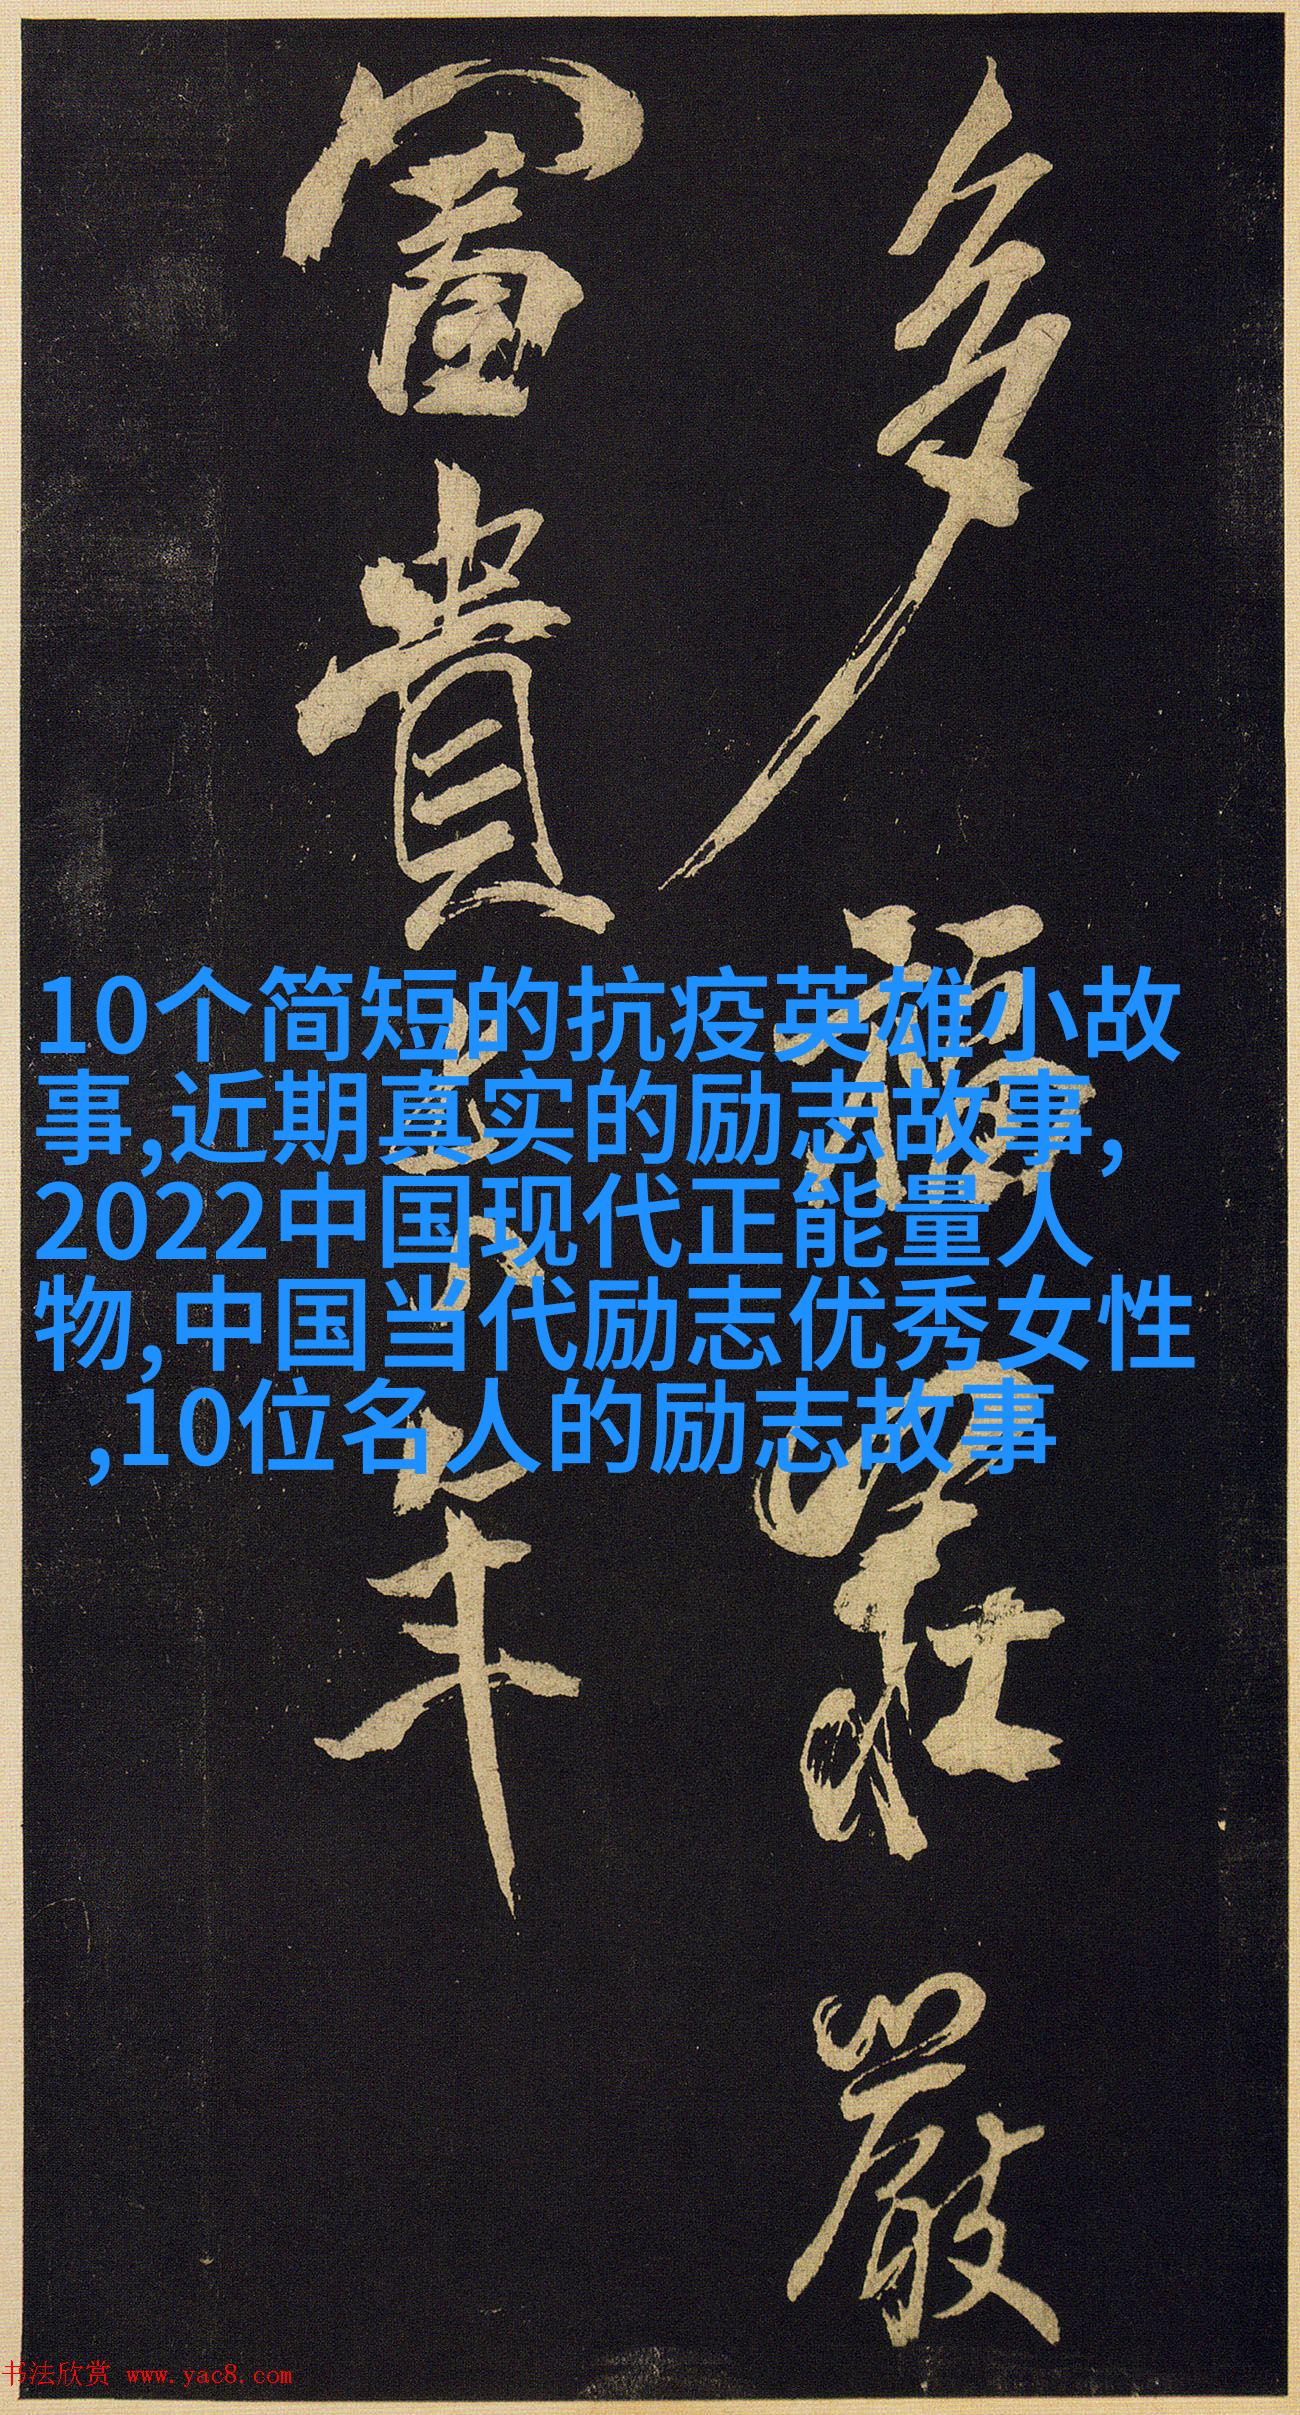 多福莊嚴
富貴
年
10个简短的抗疫英雄小故
事,近期真实的励志故事,
2022中国现代正能量人
物,中国当代励志优秀女性
,10位名人的励志故事
书法欣赏 www.yac8.com